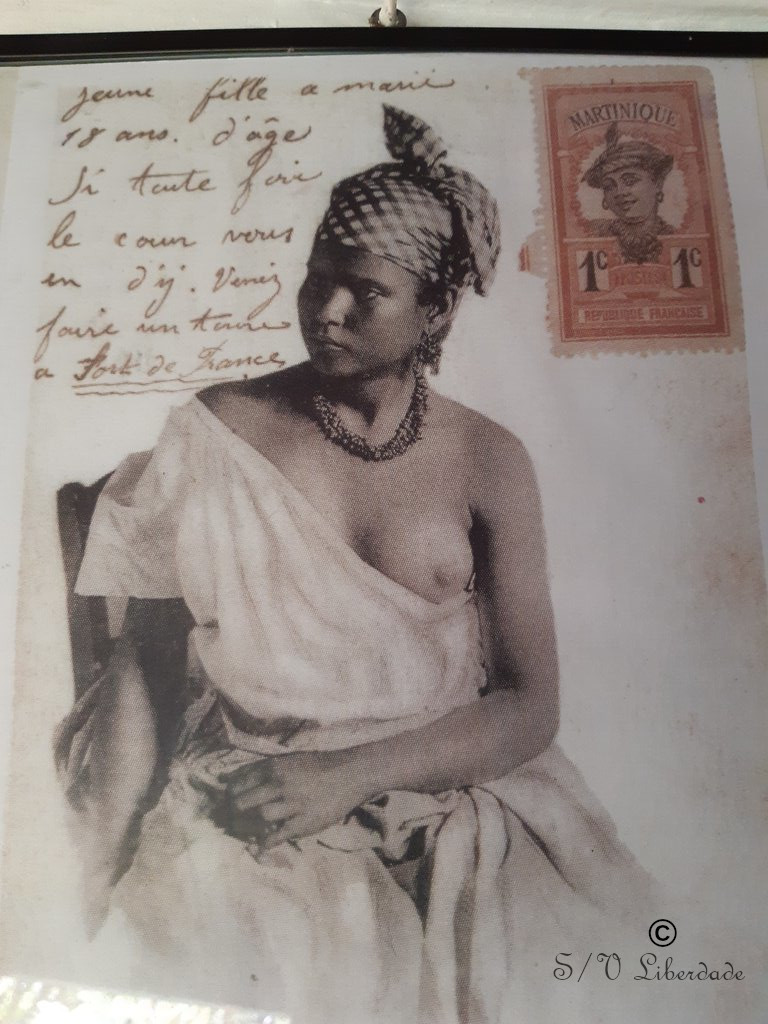 jeune fille a marié
18 ans. d'âge
Si toute fois
le cour vous
en dij. Venez
faire un tour
a Fort de France
MARTINIQUE
1c 1c
REPUBLIQUE FRANÇAISE
©
S/V Liberdade